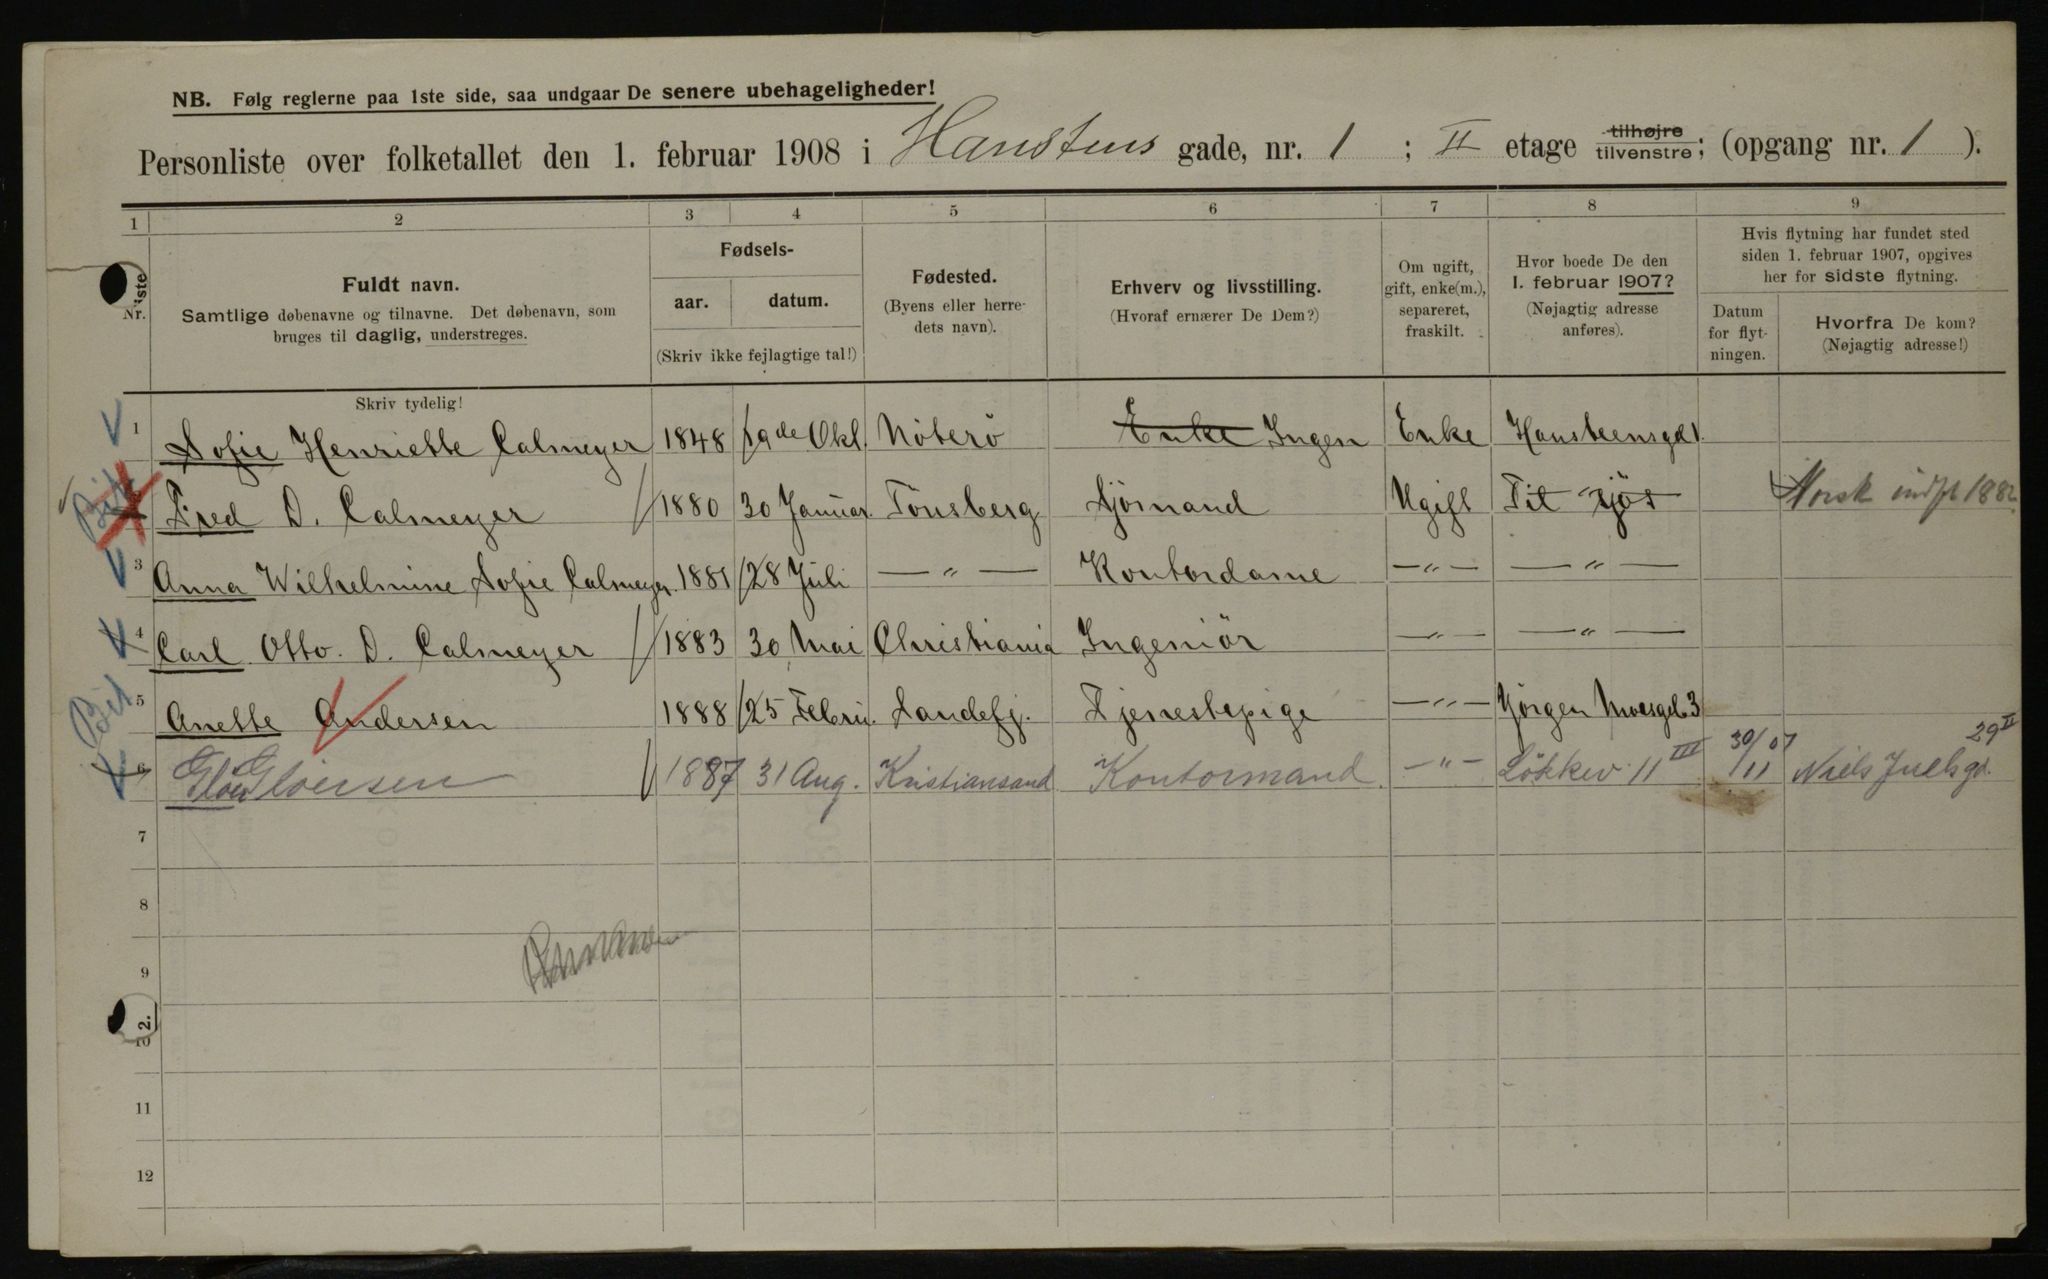 NB. Følg reglerne paa 1ste side, saa undgaar De senere ubehageligheder!
Personliste over folketallet den 1. februar 1908 i Hanstens gade, nr. 1 ; II etage tilhøjre tilvenstre; (opgang nr. 1 ).
1 2 3 4 5 6 7 8 9
Nr. Fuldt navn. Samtlige døbenavne og tilnavne. Det døbenavn, som
bruges til daglig, understreges.
Fødsels-
aar. datum.
(Skriv ikke fejlagtige tal!)
Fødested.
(Byens eller herre-
dets navn).
Erhverv og livsstilling.
(Hvoraf ernærer De Dem?)
Om ugift,
gift, enke(m.),
separeret,
fraskilt.
Hvor boede De den
1. februar 1907?
(Nøjagtig adresse
anføres).
Hvis flytning har fundet sted
siden 1. februar 1907, opgives
her for sidste flytning.
Datum
for flyt-
ningen.
Hvorfra De kom?
(Nøjagtig adresse!)
Skriv tydelig!
1 Sofie Henriette Calmeyer 1848 19de Okt. Nöterö Enke Ingen Enke Hansteensgd 1.
2 Fred D. Calmeyer 1880 30 Januar. Tönsberg Sjömand Ugift Til sjös Norsk indft 1882
3 Anna Wilhelmine Sofie Calmeyer. 1881 28 Juli — " — Kontordame — " — — " —
4 Carl Otto. D. Calmeyer 1883 30 Mai Christiania Ingeniör — " — — " —
5 Anette Andersen 1888 25 Febru. Sandefj. Tjenestepige — " — Jörgen Moesgd. 3
6 Gloersen 1887 31 Aug. Kristiansand Kontormand — " — Løkkev. 11 III 30/11 07 Niels Juelsgd. 29 II
7
8
9
2.
10
11
12